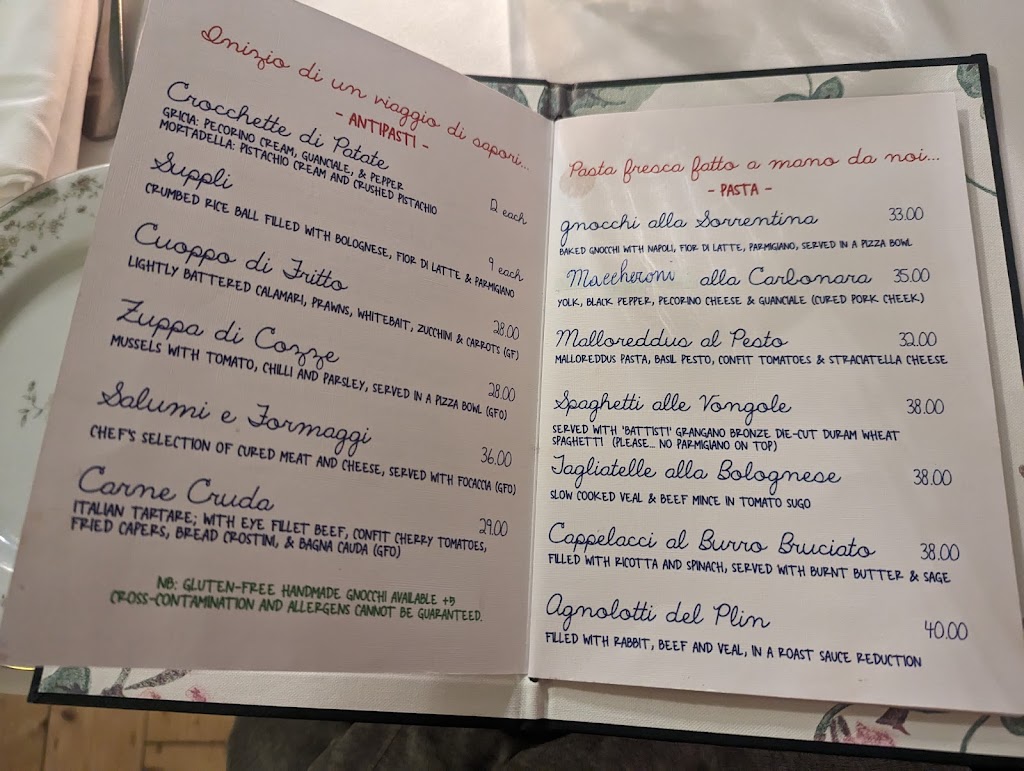 Inizio di un viaggio di sapori...
- ANTIPASTI -
Crocchette di Patate
GRICIA: PECORINO CREAM, GUANCIALE, & PEPPER
MORTADELLA: PISTACHIO CREAM AND CRUSHED PISTACHIO
12 each
Suppli
CRUMBED RICE BALL FILLED WITH BOLOGNESE, FIOR DI LATTE & PARMIGIANO
9 each
Cuoppo di Fritto
LIGHTLY BATTERED CALAMARI, PRAWNS, WHITEBAIT, ZUCCHINI & CARROTS (GF)
28.00
Zuppa di Cozze
MUSSELS WITH TOMATO, CHILLI AND PARSLEY, SERVED IN A PIZZA BOWL (GFO)
28.00
Salumi e Formaggi
CHEF'S SELECTION OF CURED MEAT AND CHEESE, SERVED WITH FOCACCIA (GFO)
36.00
Carne Cruda
ITALIAN TARTARE; WITH EYE FILLET BEEF, CONFIT CHERRY TOMATOES,
FRIED CAPERS, BREAD CROSTINI, & BAGNA CAUDA (GFO)
29.00
NB: GLUTEN-FREE HANDMADE GNOCCHI AVAILABLE +5
CROSS-CONTAMINATION AND ALLERGENS CANNOT BE GUARANTEED.
Pasta fresca fatto a mano da noi...
- PASTA -
gnocchi alla Sorrentina 33.00
BAKED GNOCCHI WITH NAPOLI, FIOR DI LATTE, PARMIGIANO, SERVED IN A PIZZA BOWL
Maccheroni alla Carbonara 35.00
YOLK, BLACK PEPPER, PECORINO CHEESE & GUANCIALE (CURED PORK CHEEK)
Malloreddus al Pesto 32.00
MALLOREDDUS PASTA, BASIL PESTO, CONFIT TOMATOES & STRACIATELLA CHEESE
Spaghetti alle Vongole 38.00
SERVED WITH 'BATTISTI' GRANGANO BRONZE DIE-CUT DURAM WHEAT
SPAGHETTI (PLEASE... NO PARMIGIANO ON TOP)
Tagliatelle alla Bolognese 38.00
SLOW COOKED VEAL & BEEF MINCE IN TOMATO SUGO
Cappelacci al Burro Bruciato 38.00
FILLED WITH RICOTTA AND SPINACH, SERVED WITH BURNT BUTTER & SAGE
Agnolotti del Plin 40.00
FILLED WITH RABBIT, BEEF AND VEAL, IN A ROAST SAUCE REDUCTION